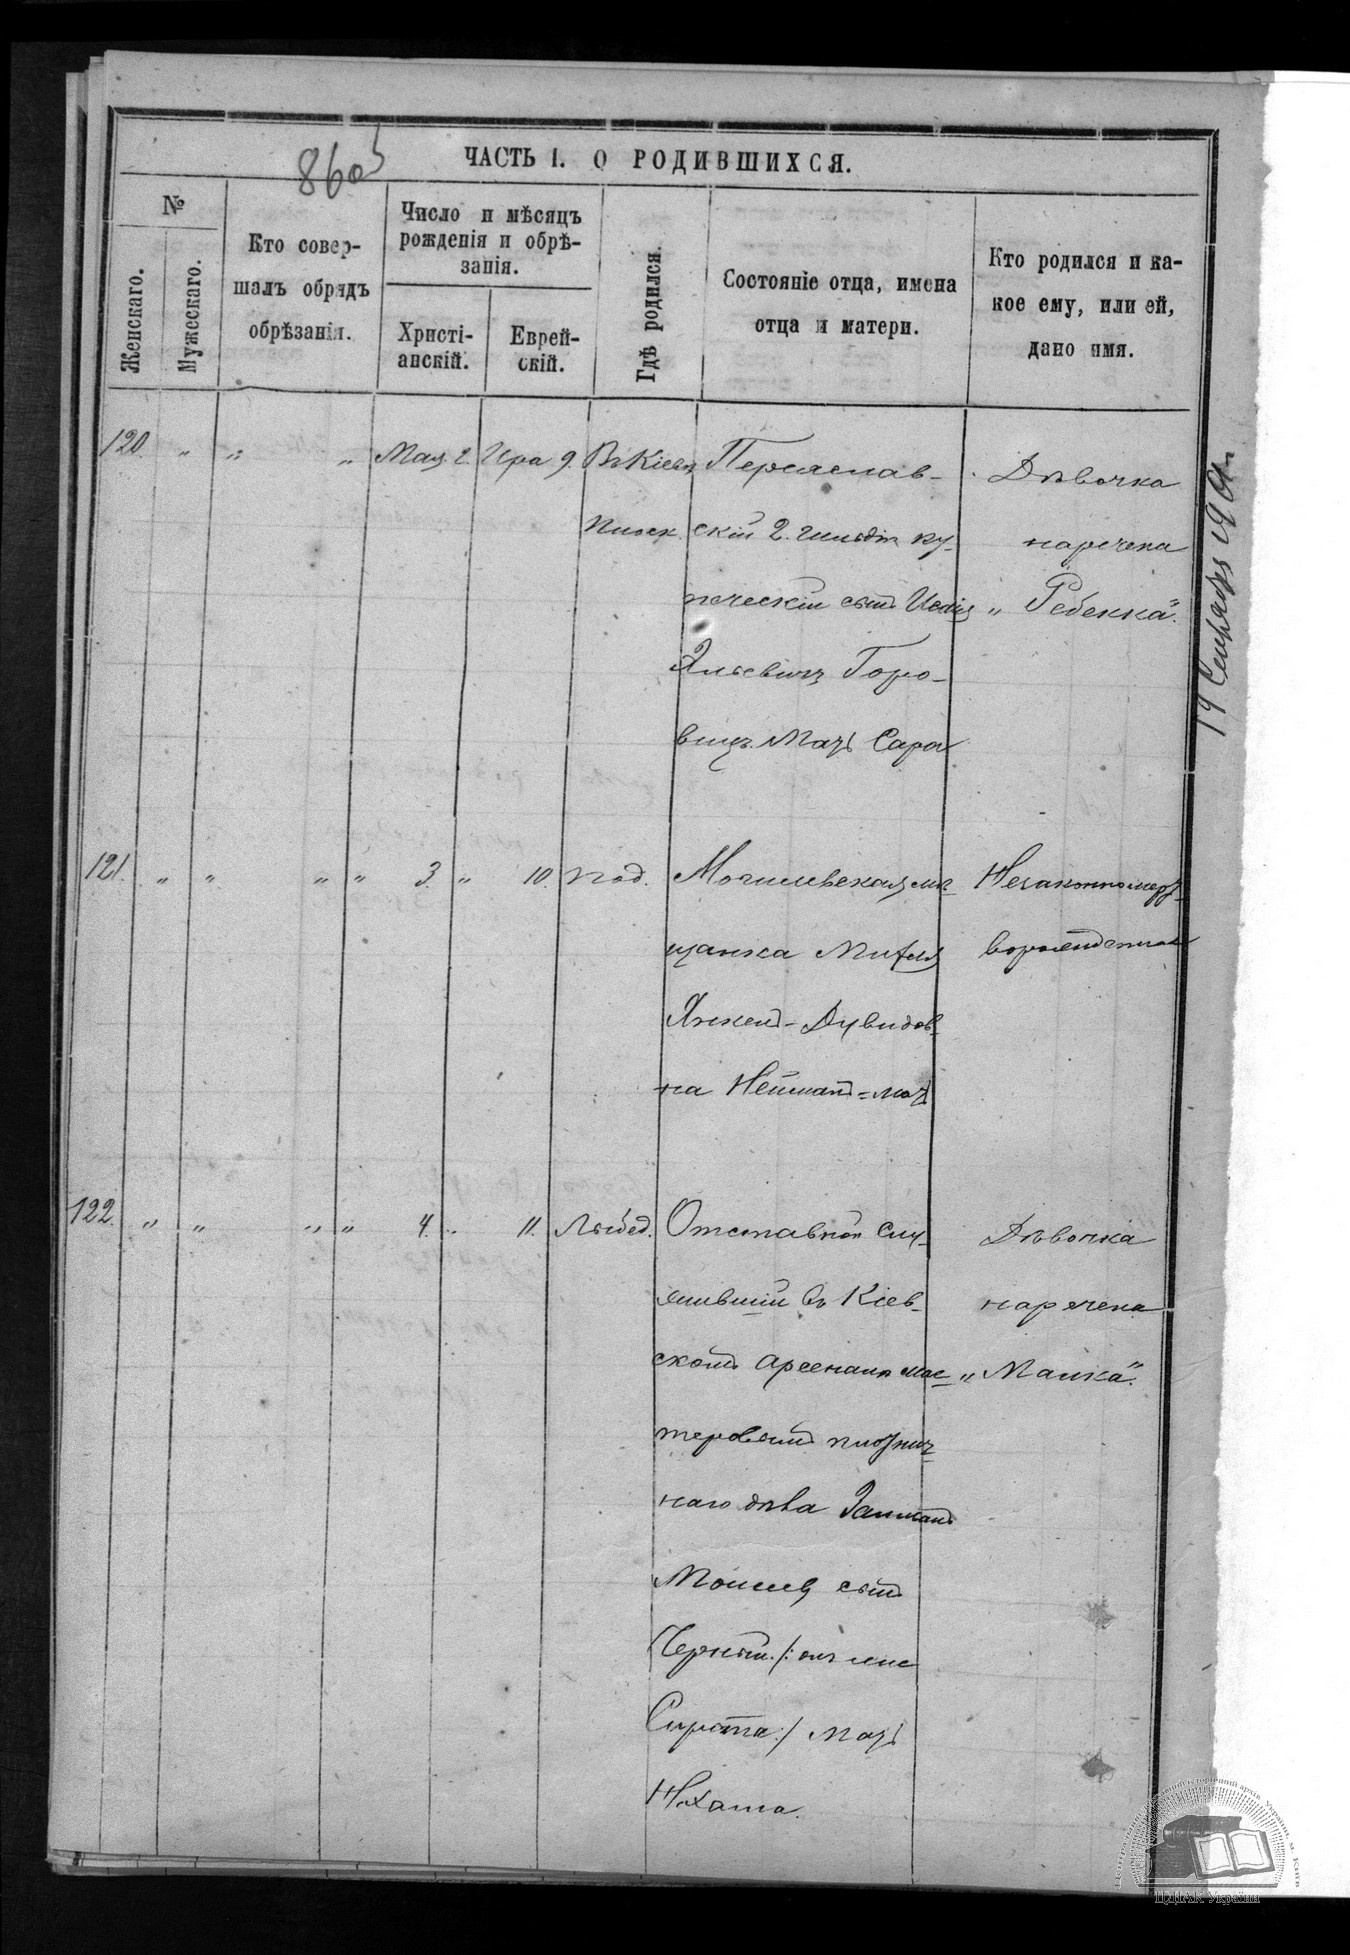 ЧАСТЬ I. О РОДИВШИХСЯ.
№
Женскаго.
Мужескаго.
Кто совер-
шалъ обрядъ
обрѣзанія.
Число и мѣсяцъ
рожденія и обрѣ-
занія.
Христі-
анскій.
Еврей-
скій.
Гдѣ родился.
Состояніе отца, имена
отца и матери.
Кто родился и ка-
кое ему, или ей,
дано имя.
120. „ „ „ Мая 2. Ира 9. Въ Кіевѣ Переяслав-
Плоск. скій 2. гильдіи ку-
печескій сынъ
Горо-
вицъ. Мать Сара
Дѣвочка
наречена
„Ребекка".
121. „ „ „ „ 3. „ 10. Под. Могилевская мѣ-
щанка
Янкель-Дувидов-
на Нейманъ - мать
Незаконно мерт-
ворожденная
122. „ „ „ „ 4. „ 11. Лыбед. Отставной слу-
жившій въ Кіев-
скомъ Арсеналѣ мас-
теровымъ плотнич-
наго дѣла Залманъ
сынъ
Черный /: онъ же
Сирота :/ мать
Нехама.
Дѣвочка
наречена
„Малка".
ЦДІАК України